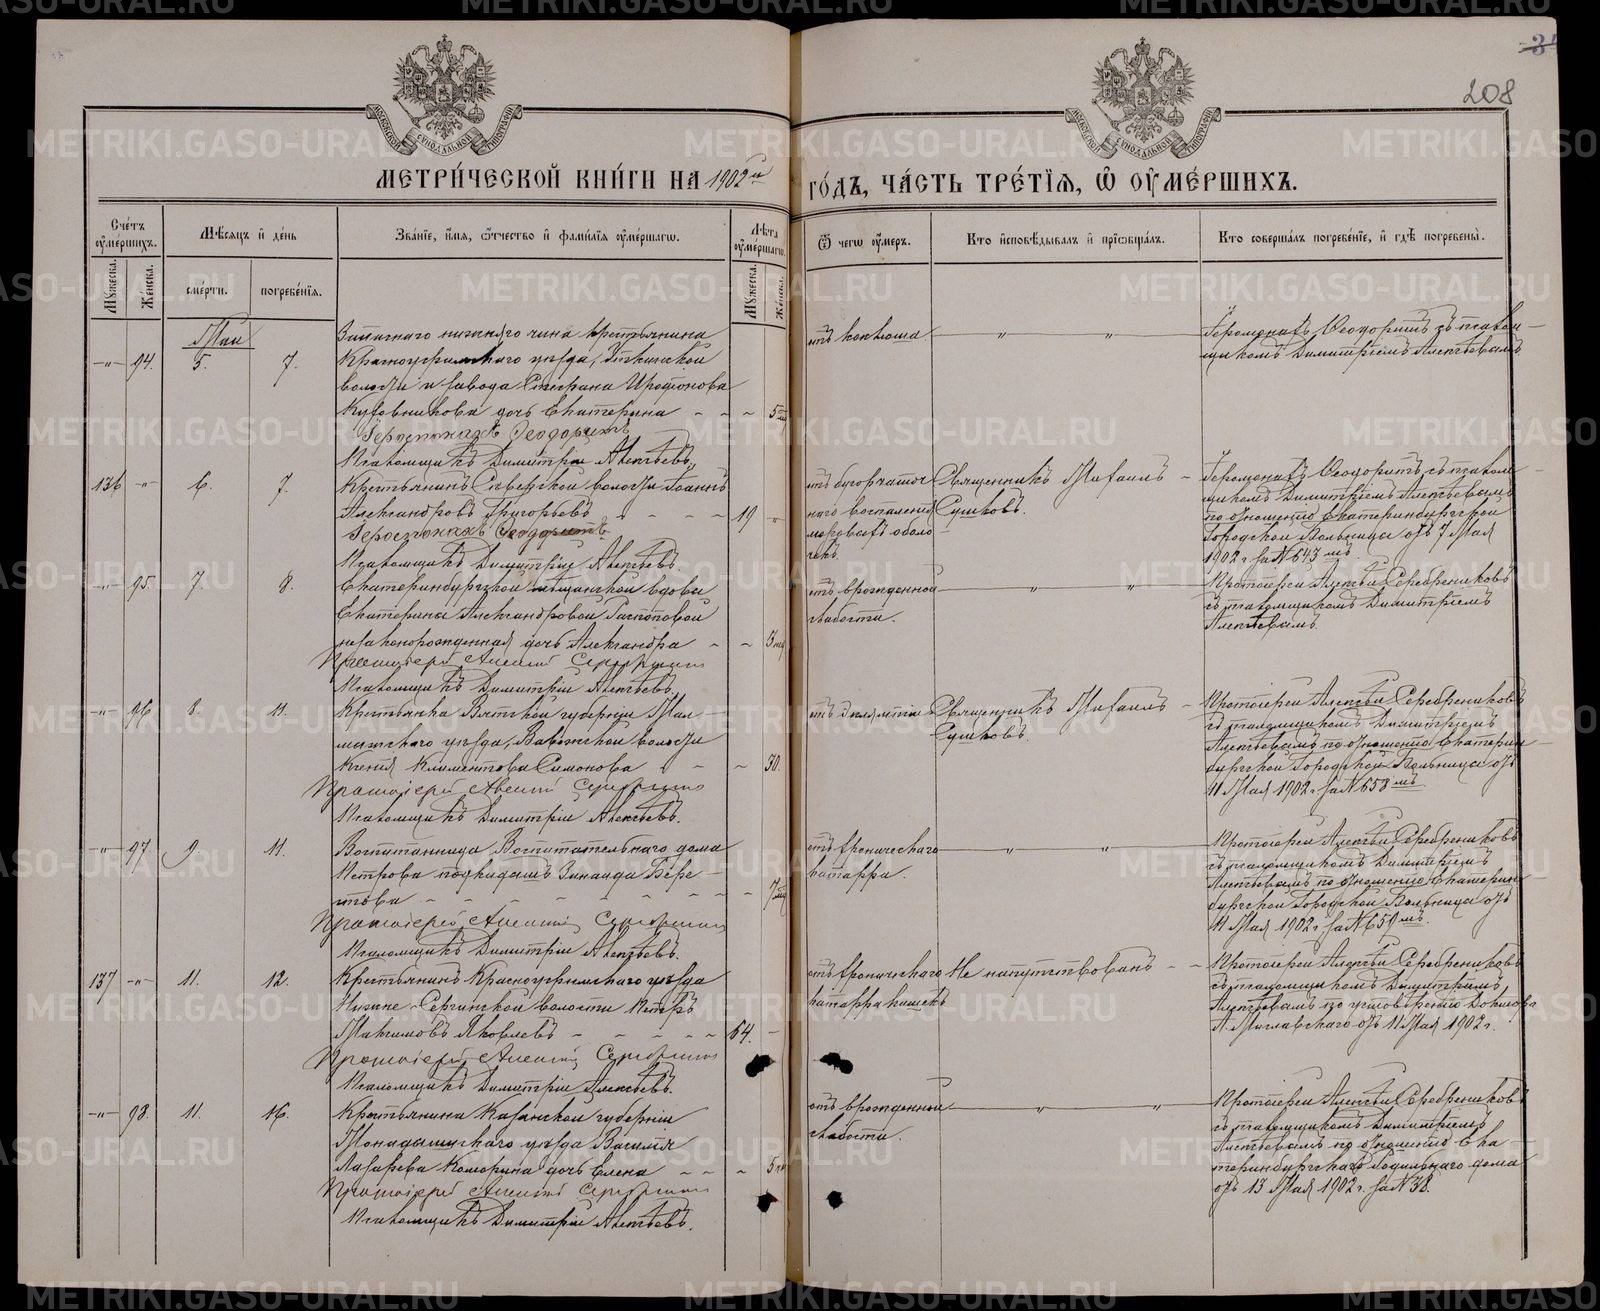 208
МОСКОВСКОЙ СѴНОДАЛЬНОЙ ТИПОГРАФІИ
МОСКОВСКОЙ СѴНОДАЛЬНОЙ ТИПОГРАФІИ
МЕТРИ́ЧЕСКОЙ КНИ́ГИ НА 1902й
ГО́ДЪ, ЧА́СТЬ ТРЕ́ТІѦ, Ѡ ОУ҆МЕ́РШИХЪ.
Сче́тъ оу҆ме́ршихъ.
Мѣ́сѧцъ и҆ де́нь
Зва́нїе, и҆́мѧ, ѻ҆́тчество и҆ фамиліѧ оу҆ме́ршагѡ.
Лѣ́та оу҆ме́ршагѡ.
Ѿ чегѡ̀ оу҆́меръ.
Кто̀ и҆сповѣ́дывалъ и҆ прїѡбща́лъ.
Кто̀ соверша́лъ погребе́нїе, и҆ гдѣ̀ погребены̀.
Мꙋ́жеска.
Же́нска.
сме́рти.
погребе́нїѧ.
Мꙋ́жеска.
Же́нска.
Май
Запаснаго нижняго чина крестьянина
-„- 94. 5. 7. Красноуфимскаго уѣзда,
волости и завода Стефана Иродіонова
дочь Екатерина - - - 5 м
Іеромонахъ Ѳеодоритъ
Псаломщикъ Димитрій Алексѣевъ.
отъ коклюша. „ „
Іеромонахъ Ѳеодоритъ съ псалом-
щикомъ Димитріемъ Алексѣевымъ
136 -„- 6. 7. Крестьянинъ волости Іоаннъ
Александровъ Григорьевъ - - - - 19 „
Іеромонахъ Ѳеодоритъ
Псаломщикъ Димитрій Алексѣевъ.
отъ бугорчатог
наго воспаленія
мозговыхъ оболо
чекъ.
Священникъ Михаилъ -
Сушковъ.
Іеромонахъ Ѳеодоритъ съ псалом-
щикомъ Димитріемъ Алексѣевымъ
по отношенію Екатеринбургской
Городской Больницы отъ 7 Мая
1902 г. за № 643 мъ
-„- 95. 7. 8. Екатеринбургской мѣщанской вдовы
Екатерины Александровой
незаконорожденная дочь Александра - - 3
Протоіерей Алексій Серебренниковъ
Псаломщикъ Димитрій Алексѣевъ.
отъ врожденной „ „
слабости.
Протоіерей Алексѣй Серебрениковъ
съ псаломщикомъ Димитріемъ
Алексѣевымъ
-„- 96 8. 11. Крестьянка Вятской губерніи Мал-
мыжскаго уѣзда, волости
Ксенія Климентова Симонова - - - 50.
Протоіерей Алексій Серебренниковъ
Псаломщикъ Димитрій Алексѣевъ.
Священникъ Михаилъ -
Сушковъ.
Протоіерей Алексѣй Серебрениковъ
съ псаломщикомъ Димитріемъ
Алексѣевымъ по отношенію Екатерин-
бургской Городской Больницы отъ
11 Мая 1902 г. за № 658 мъ
-„- 97 9. 11. Воспитанница Воспитательнаго дома
Петрова подкидышъ Зинаида
- - - - - - - 7 м
Протоіерей Алексій Серебренниковъ
Псаломщикъ Димитрій Алексѣевъ.
отъ хроническаго „ „
катарра.
Протоіерей Алексѣй Серебрениковъ
съ псаломщикомъ Димитріемъ
Алексѣевымъ по отношенію Екатерин-
бургской Городской Больницы отъ
11 Мая 1902 г. за № 659 мъ.
137 -„- 11. 12. Крестьянинъ Красноуфимскаго уѣзда
Нижне-Сергинской волости Петръ
Максимовъ Яковлевъ - - - - - 64. -
Протоіерей Алексій Серебренниковъ
Псаломщикъ Димитрій Алексѣевъ.
отъ хроническаго
катарра кишекъ
Не напутствованъ - -
Протоіерей Алексѣй Серебрениковъ
съ псаломщикомъ Димитріемъ
Алексѣевымъ по удостовѣренію Доктора
А. Миславскаго отъ 11 Мая 1902 г.
-„- 98. 11. 16. Крестьянина Казанской губерніи
уѣзда Василія
Лазарева дочь Елена - - - 5
Протоіерей Алексій Серебренниковъ
Псаломщикъ Димитрій Алексѣевъ.
отъ врожденной „ „
слабости.
Протоіерей Алексѣй Серебрениковъ
съ псаломщикомъ Димитріемъ
Алексѣевымъ по отношенію Ека-
теринбургскаго Родильнаго дома
отъ 13 Мая 1902 г. за № 38.
METRIKI.GASO-URAL.RU